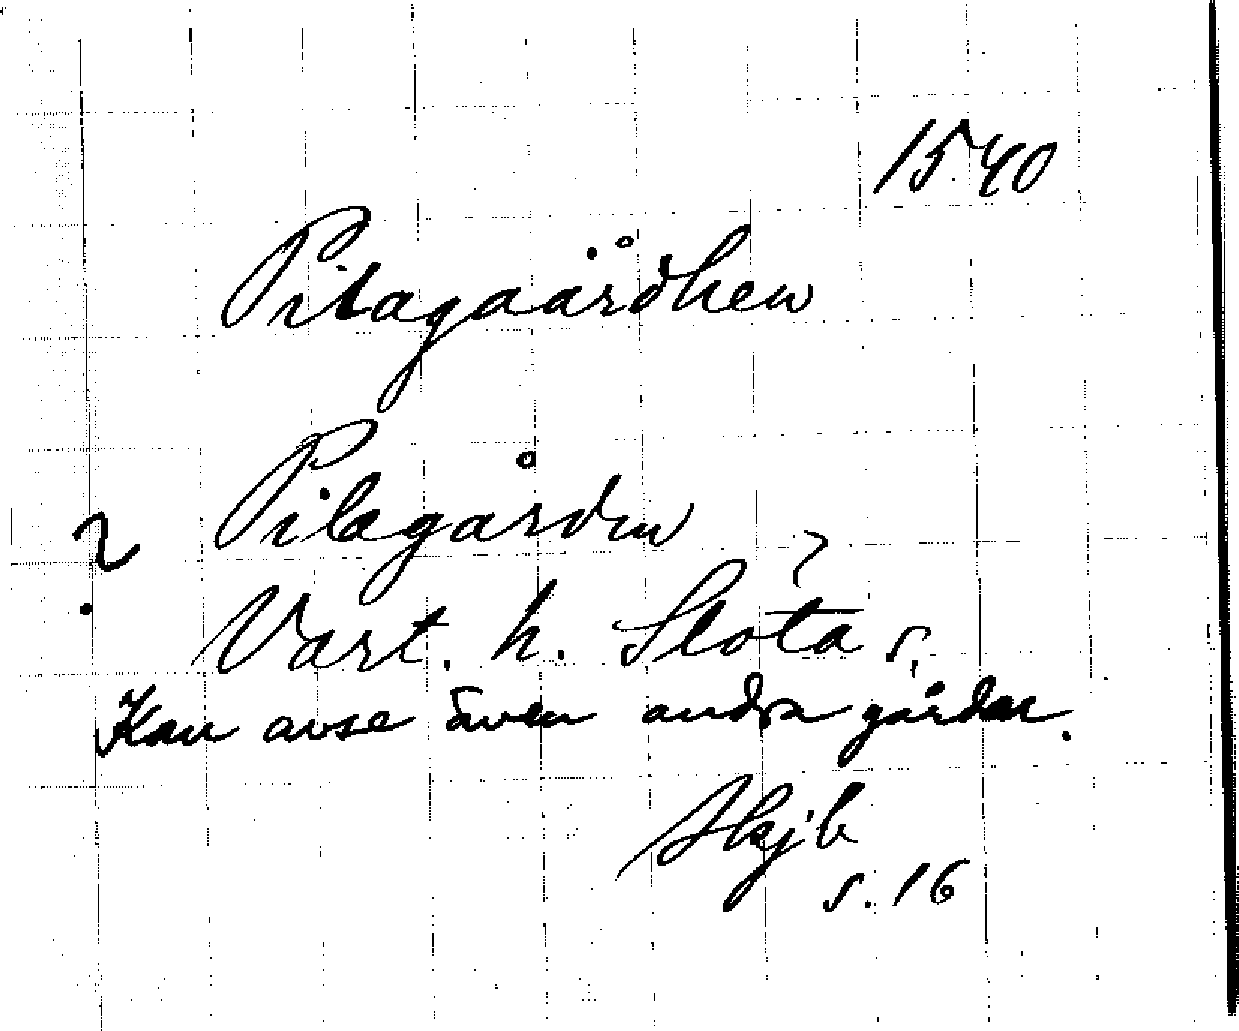 1540
Pilagaårdhen
? Pilagården
Vart. h. Slöta s. ?
Kan avse även andra gårdar.
Skjb
s. 16